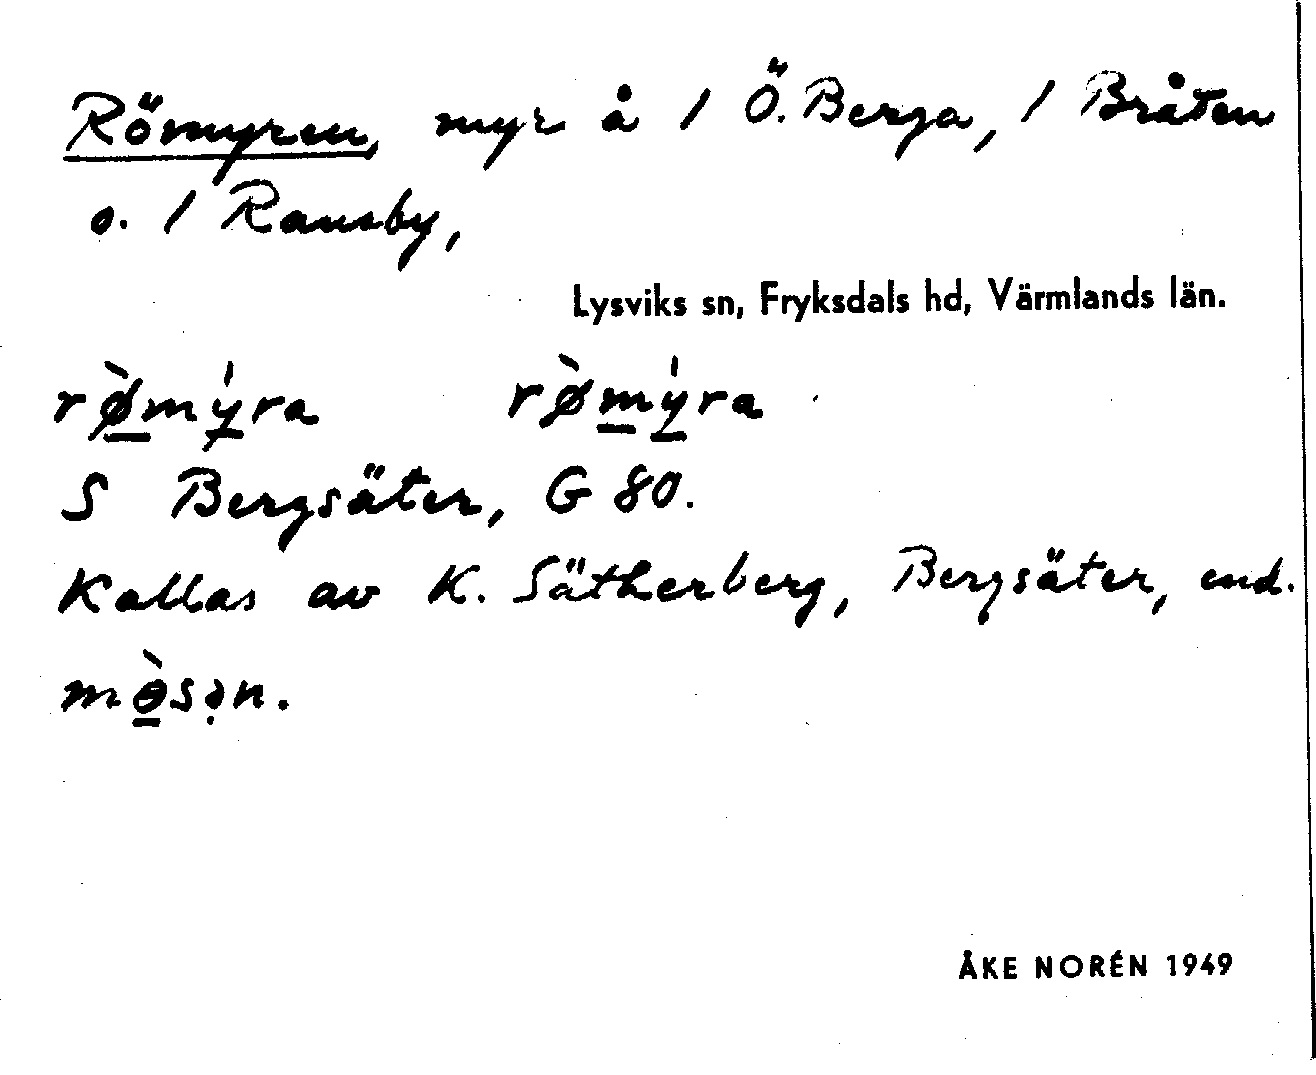 Römyren, myr å 1 Ö. Berga, 1 Bråten
o. 1 Ransby,
Lysviks sn, Fryksdals hd, Värmlands län.
rø̀mýra rø̀mýra
S Bergsäter, G 80.
Kallas av K. Sätherberg, Bergsäter, end.
mɵ̀sən.
ÅKE NORÉN 1949